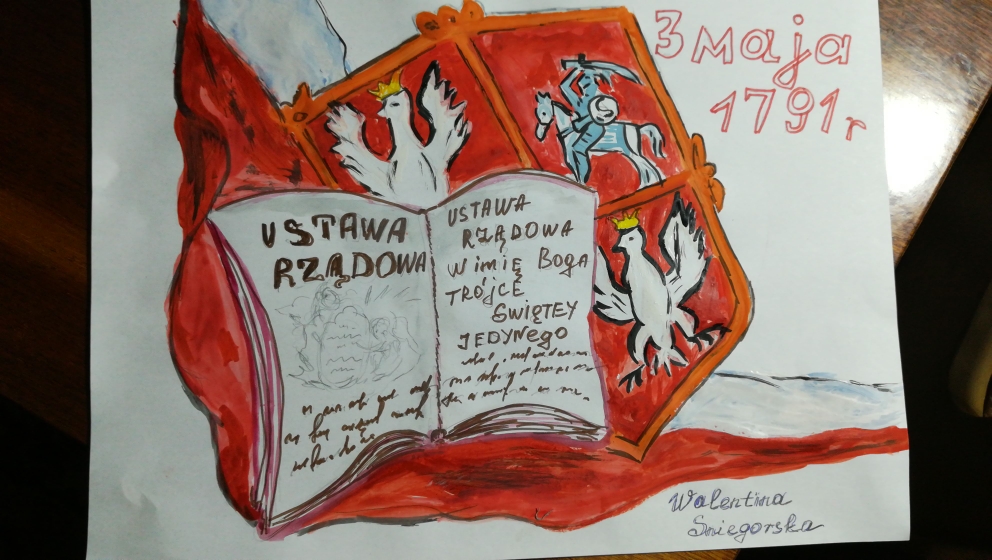 3 maja
1791r
USTAWA
RZĄDOWA
USTAWA
RZĄDOWA
W imię Boga
TRÓJCE
ŚWIĘTEY
JEDYNego
Walentina
Śniegorska